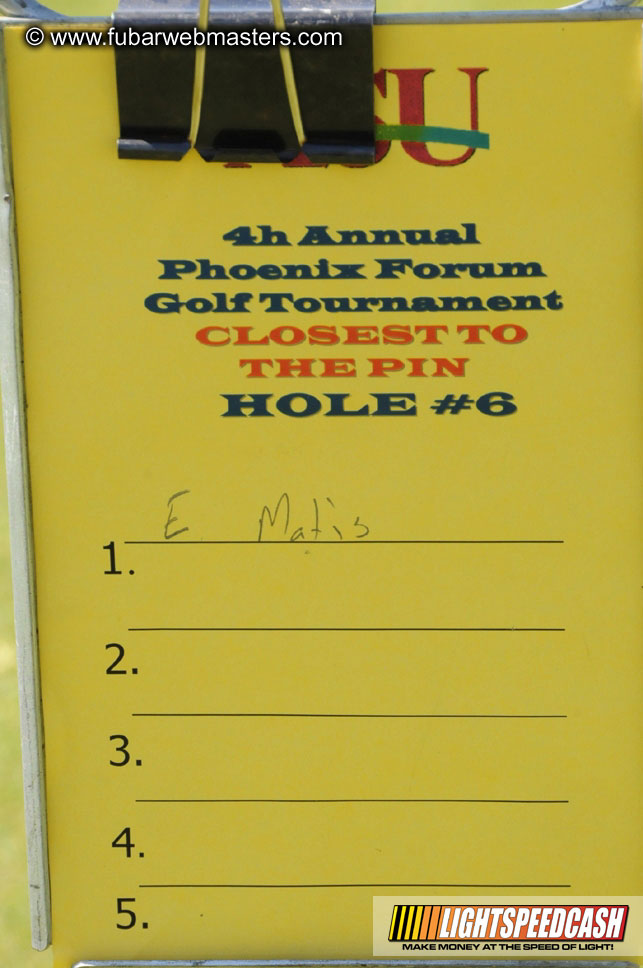 © www.fubarwebmasters.com
ASU
4h Annual
Phoenix Forum
Golf Tournament
CLOSEST TO
THE PIN
HOLE #6
E. Matis
1.
2.
3.
4.
5.
LIGHTSPEEDCASH
MAKE MONEY AT THE SPEED OF LIGHT!